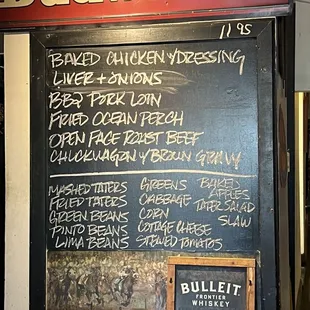 11 95
BAKED CHICKEN W/DRESSING
LIVER + ONIONS
BBQ PORK LOIN
FRIED OCEAN PERCH
OPEN FACE ROAST BEEF
CHUCKWAGON W/ BROWN GRAVY
MASHED TATERS
FRIED TATERS
GREEN BEANS
PINTO BEANS
LIMA BEANS
GREENS
CABBAGE
CORN
COTTAGE CHEESE
STEWED TOMATOS
BAKED
APPLES
TATER SALAD
SLAW
BULLEIT
FRONTIER
WHISKEY